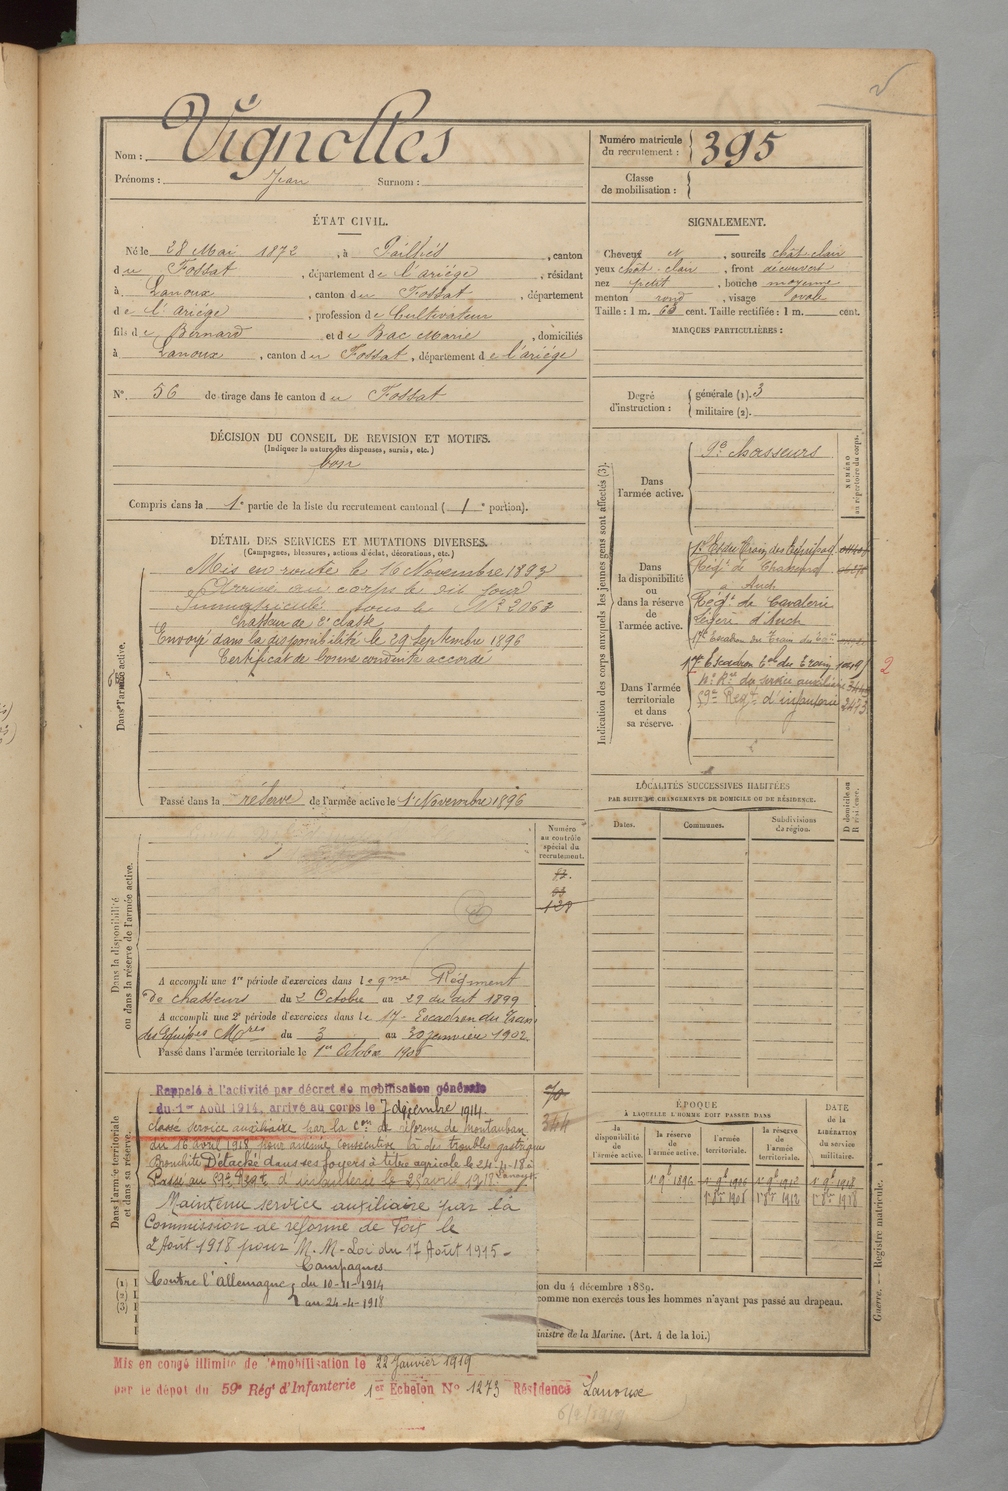 Nom : Vignolles
Prénoms : Jean Surnom :
Numéro matricule du recrutement : 395
Classe de mobilisation :
ÉTAT CIVIL.
Né le 28 Mai 1872, à Pailhès, canton
du Fossat, département de l'ariège, résidant
à Lanoux, canton du Fossat, département
de l'ariège, profession de Cultivateur
fils de Bernard et de Bac Marie, domiciliés
à Lanoux, canton du Fossat, département de l'ariège
N° 56 de tirage dans le canton du Fossat
SIGNALEMENT.
Cheveux N, sourcils chât. clair
yeux chât. clair, front découvert
nez petit, bouche moyenne
menton rond, visage ovale
Taille : 1 m. 63 cent. Taille rectifiée : 1 m. cent.
MARQUES PARTICULIÈRES :
Degré d'instruction : générale (1). 3
militaire (2).
DÉCISION DU CONSEIL DE REVISION ET MOTIFS.
(Indiquer la nature des dispenses, sursis, etc.)
bon
Compris dans la 1e partie de la liste du recrutement cantonal (1e portion).
DÉTAIL DES SERVICES ET MUTATIONS DIVERSES.
(Campagnes, blessures, actions d'éclat, décorations, etc.)
Dans l'armée active.
Mis en route le 16 Novembre 1893
Arrivé au corps le dit jour
Immatriculé sous le N° 2062
Chasseur de 2e classe
Envoyé dans la disponibilité le 29 Septembre 1896
Certificat de bonne conduite accordé
Passé dans la réserve de l'armée active le 1er Novembre 1896
Indication des corps auxquels les jeunes gens sont affectés (3).
NUMÉRO au répertoire du corps.
Dans l'armée active.
9e Chasseurs
Dans la disponibilité ou dans la réserve de l'armée active.
à Auch
Régt. de Cavalerie
Légère d'Auch
17e Escadron du Train
Dans l'armée territoriale et dans sa réserve.
17e Escadron Tal du Train
service auxiliaire
59e Regt. d'infanterie
2
LOCALITÉS SUCCESSIVES HABITÉES
PAR SUITE DE CHANGEMENTS DE DOMICILE OU DE RÉSIDENCE.
Dates.
Communes.
Subdivisions de région.
D domicile ou R résidence.
Dans la disponibilité ou dans la réserve de l'armée active.
Numéro au contrôle spécial du recrutement.
A accompli une 1re période d'exercices dans le 9me Régiment
de chasseurs du 2 Octobre au 29 du dit 1899
A accompli une 2e période d'exercices dans le 17e Escadron du Train
des Equipes Mres du 3 au 30 janvier 1902.
Passé dans l'armée territoriale le 1er Octobre 1906
Dans l'armée territoriale et dans sa réserve.
70
344
Rappelé à l'activité par décret de mobilisation générale
du 1er Août 1914, arrivé au corps le 7 décembre 1914.
classé service auxiliaire par la Con de réforme de Montauban
du 16 avril 1918 pour anémie consécutive à des troubles gastriques
Bronchite Détaché dans ses foyers à titre agricole le 24-4-18 à Lanoux
Passé au 59e Régt. d'infanterie le 25 avril 1918
Maintenu service auxiliaire par la
Commission de réforme de Foix le
2 Août 1918 pour M.M - Loi du 17 Août 1915 -
Campagnes
Contre l'Allemagne, du 10-11-1914
au 24-4-1918
ÉPOQUE
À LAQUELLE L'HOMME DOIT PASSER DANS
la disponibilité de l'armée active.
la réserve de l'armée active.
l'armée territoriale.
la réserve de l'armée territoriale.
DATE de la LIBÉRATION du service militaire.
on du 4 décembre 1889.
comme non exercés tous les hommes n'ayant pas passé au drapeau.
inistre de la Marine. (Art. 4 de la loi.)
Guerre. — Registre matricule. 1
Mis en congé illimité de démobilisation le 22 Janvier 1919
par le dépot du 59e Régt d'Infanterie 1er Echelon N° 1273 Résidence Lanoux